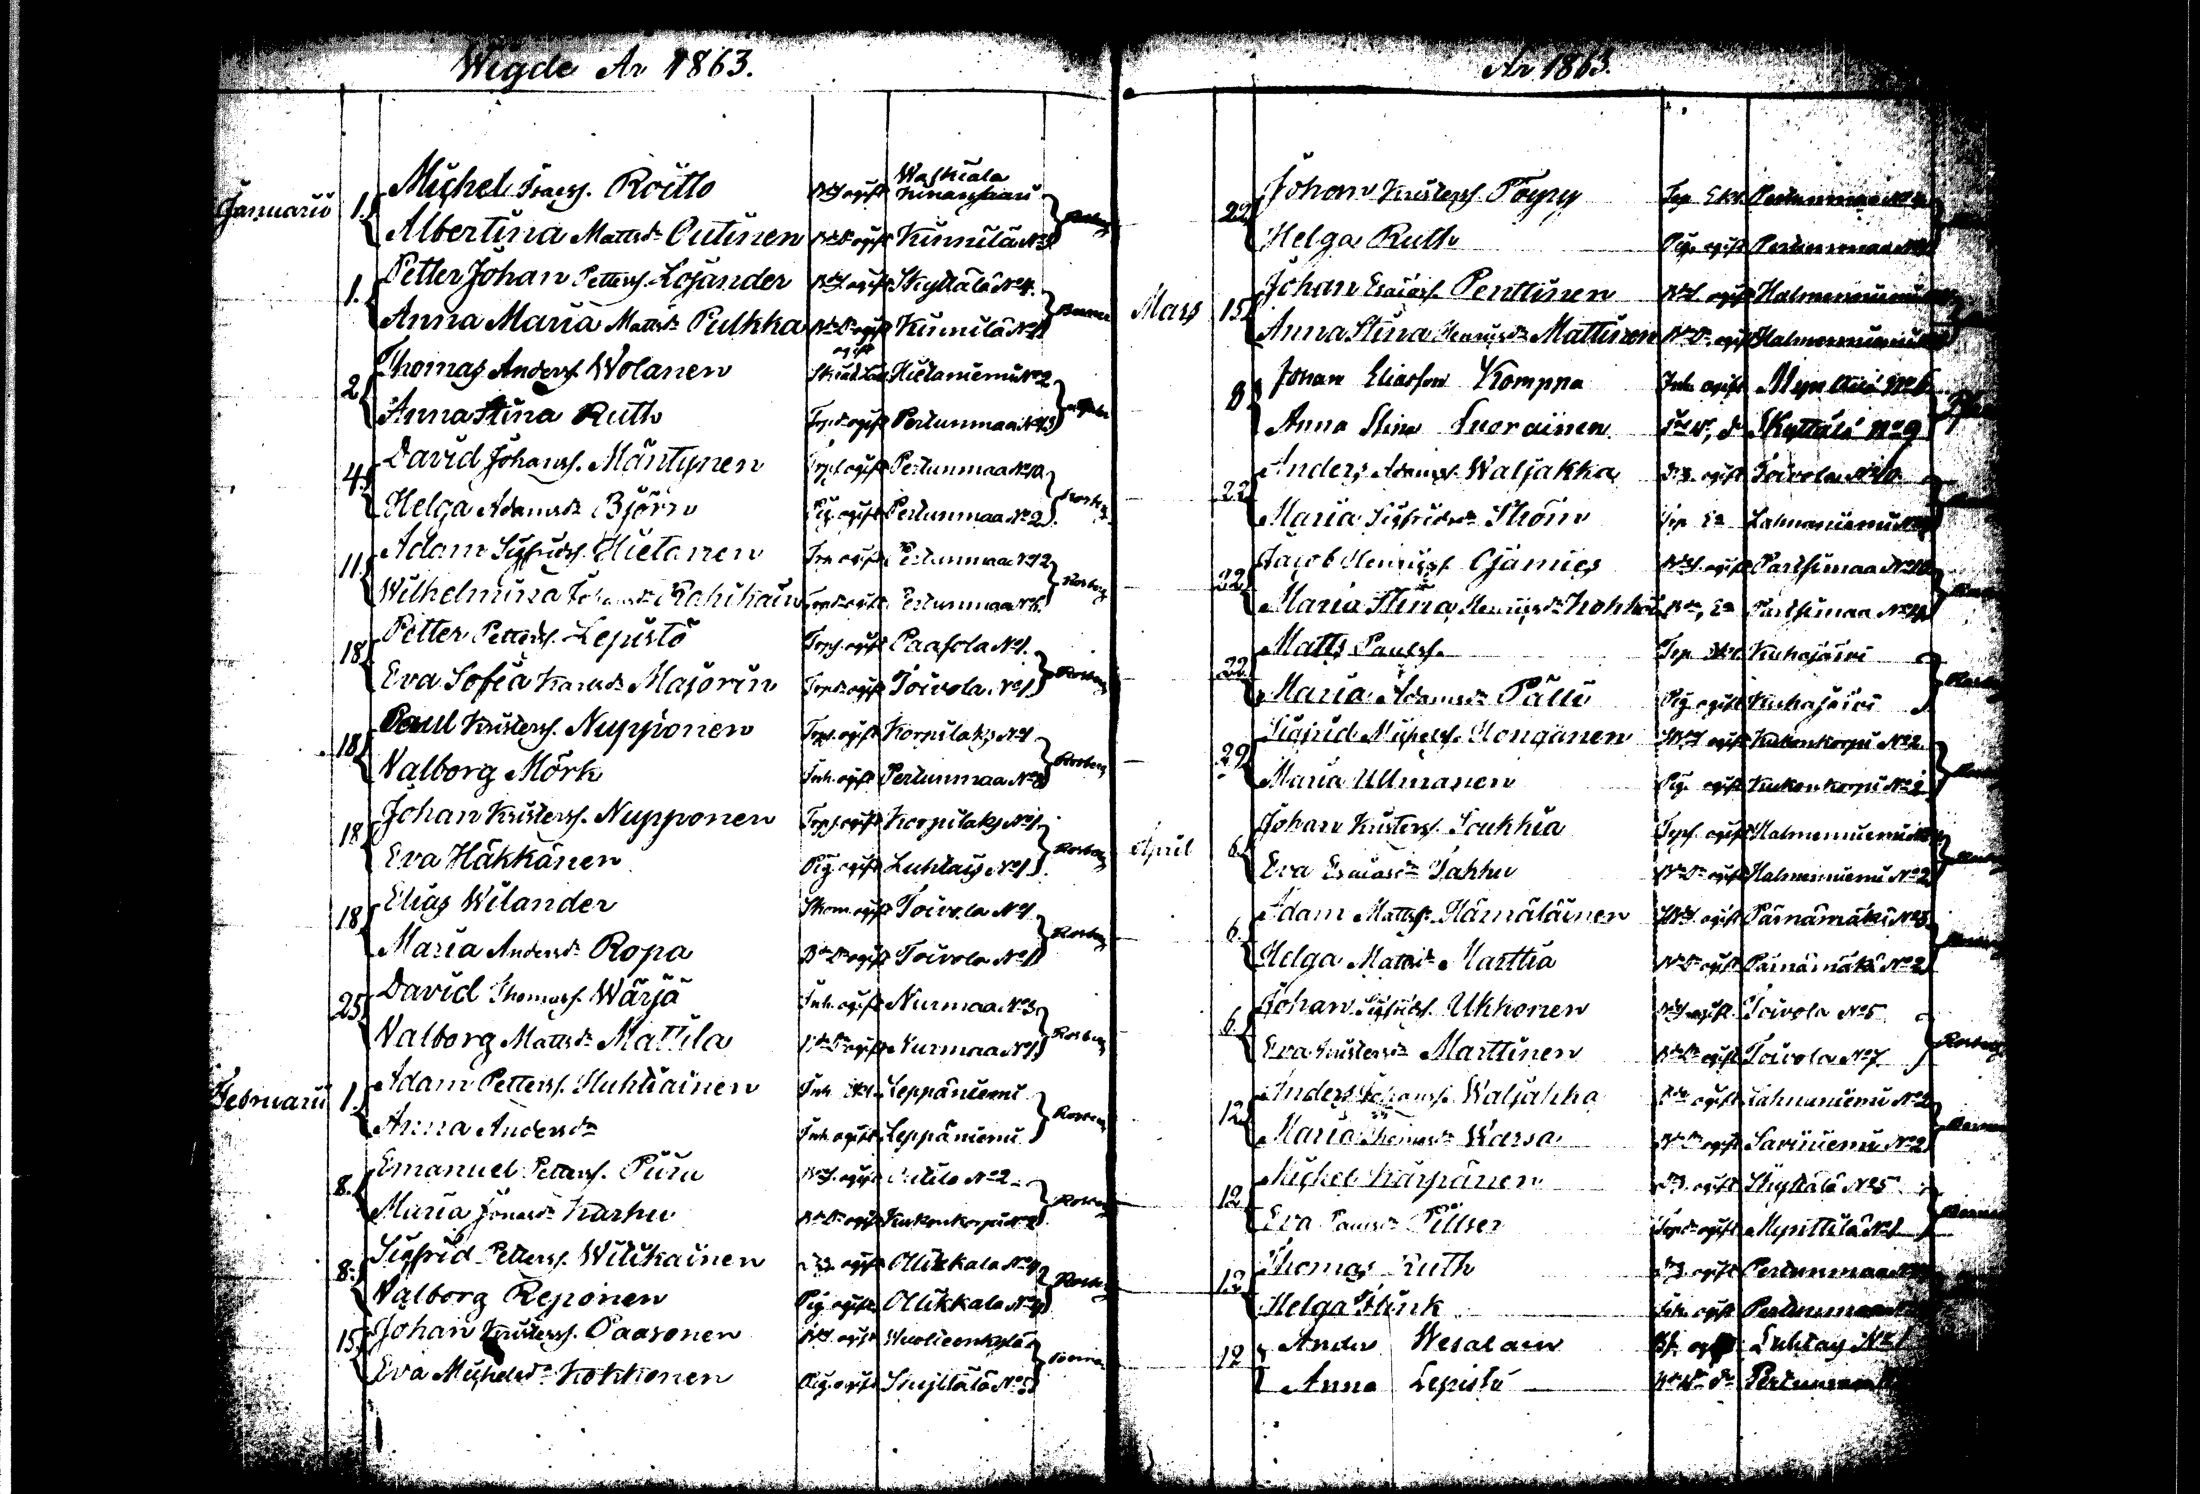 Wigde År 1863.
Januarii 1. Michel Isacss. Roitto Bds ogift Waskiala Kinansaari
Albertina Mattsdr Outinen BdeDr ogift Kinnilä No
1. Petter Johan Petterss. Lojander Bds ogift Skyttälä No 4.
Anna Maria Mattsdr Pulkka BdeDr ogift Kinnilä No 1
2 Thomas Anderss. Wolanen ogift Hietaniemi No 2
Anna Stina Ruth Torpdr ogift Pertunmaa No 13
4. David Johanss. Mäntynen Torps. ogift Pertunmaa No 10
Helga Adamsdr Björn Pig. ogift Pertunmaa No 2 Rosberg
11. Adam Sigfridss. Hietanen Torp ogift Pertunmaa No 12
Wilhelmina Johansdr Torpdr ogift Pertunmaa No 6. Rosberg
18 Petter Petterss. Lepistö Torps. ogift Paasola No 1.
Eva Sofia Majorin Torpdr ogift Toivola No 1 Rosberg
18 Paul Kristerss. Nupponen Torps. ogift Korpilaks No 1
Valborg Mörk Inh. ogift Pertunmaa No Rosberg
18 Johan Kristerss. Nupponen Torps. ogift Korpilaks No 1
Eva Häkkänen Pig. ogift Luhtais No 1 Rosberg
18 Elias Wilander ogift Toivola No 1
Maria Andersdr Ropa BdeDr ogift Toivola No 1 Rosberg
25 David Thomass. Wärjä Inh. ogift Nurmaa No 3
Valborg Mattsdr Mattila BdeDr ogift Nurmaa No 1 Rosberg
Februarii 1. Adam Petterss. Huhtiainen Inh. Ekl. Leppäniemi
Anna Andersdr Inh. ogift Leppäniemi Rosberg
8. Emanuel Petterss. Piiru Bds. ogift No 2
Maria Jonasdr Karhu BdeDr ogift Kukonkorpi No 2 Rosberg
8. Sigfrid Petterss. Wilikainen Drg. ogift Ollikkala No 4
Valborg Reponen Pig. ogift Ollikkala No 4 Rosberg
15 Johan Kristerss. Paasonen Bds. ogift Wuolieenkylä
Eva Michelsdr Kokkonen Pig. ogift Skyttälä No 5
År 1863.
22 Johan Kristerss. Pöyry Torp Ekl. Pertunmaa No
Helga Ruth Pig. ogift Pertunmaa No
Mars 15 Johan Esaiass. Penttinen Bds. ogift Halmenniemi
Anna Stina Henricsdr Mattinen BdeDr. ogift Halmenniemi
8 Johan Eliasson Komppa Inh. ogift Mynttilä No 6
Anna Stina Luorainen Skyttälä No 9
22 Anders Adamss. Waljakka Drg. ogift Toivola No 10
Maria Sigfridsdr Ström Torp Ea Lahnaniemi No
22 Jacob Henricss. Ojamies Bds. ogift Partsimaa No 10
Maria Stina Henricsdr Bde, Ea Partsimaa No 4
22 Matts Paulss. Torp Ekl. Kuhajärvi
Maria Adamsdr Pälli Pig ogift Kuhajärvi
29 Sigfrid Michelss. Honganen Bds ogift Kukonkorpi No 2.
Maria Ullmanen Pig. ogift Kukonkorpi No 2
April 6. Johan Kristerss. Soukkia Torps. ogift Halmenniemi
Eva Esaiasdr Tahhu BdeDr ogift Halmenniemi No 2
6. Adam Mattss. Hämäläinen Bds. ogift Pärnämäki No 3
Helga Mattsdr Marttia BdeDr ogift Pärnämäki No 2
6. Johan Sigfridss. Ukkonen Bds ogift Toivola No 5
Eva Kristersdr Marttinen BdeDr ogift Toivola No 7 Rosberg
12 Anders Johanss. Waljakka Bde ogift Lahnaniemi No 2
Maria Thomasdr Warsa BdeDr ogift Saviniemi No 2
12 Michel Karpanen Drg. ogift Skyttälä No 5
Eva Paulsdr Pillser Torpdr ogift Mynttilä No 1
12 Thomas Ruth Drg. ogift Pertunmaa No
Helga Flink Inh. ogift Pertunmaa
12 Anders Wesalain ogift Luhtay No 1
Anna Lepistö Pertunmaa